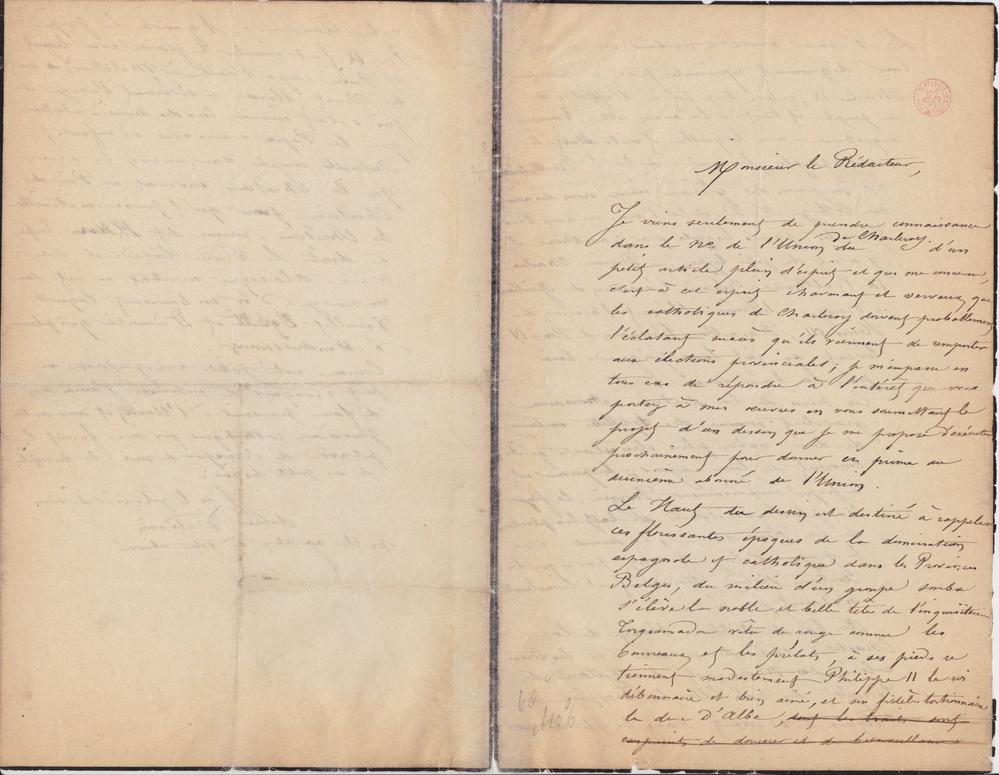 Monsieur le Rédacteur,
Je viens seulement de prendre connaissance
dans le No de l'Union de Charleroy du d'un
petit article plein d'esprit et qui me concerne,
c'est à cet esprit charmant et verveux que
les catholiques de Charleroy doivent probablement
l'éclatant succès qu'ils viennent de remporter
aux élections provinciales; je m'empresse en
tous cas de répondre à l'intérêt que vous
portez à mes œuvres en vous soumettant le
projet d'un dessin que je me propose d'exécuter
prochainement pour donner en prime au
deuxième abonné de l'Union.
Le Haut du dessin est destiné à rappeler
ces florissantes époques de la domination
espagnole et catholique dans les Provinces
Belges, du milieu d'un groupe sombre
s'élève la noble et belle tête de l'inquisiteur
Torquemada vêtu de rouge comme les
bourreaux et les prélats, à ses pieds se
tiennent modestement Philippe II le roi
débonnaire et bien aimé, et son fidèle tortionnaire
le duc D'Albe, dont les traits sont
empreints de douceur et de bienveillance